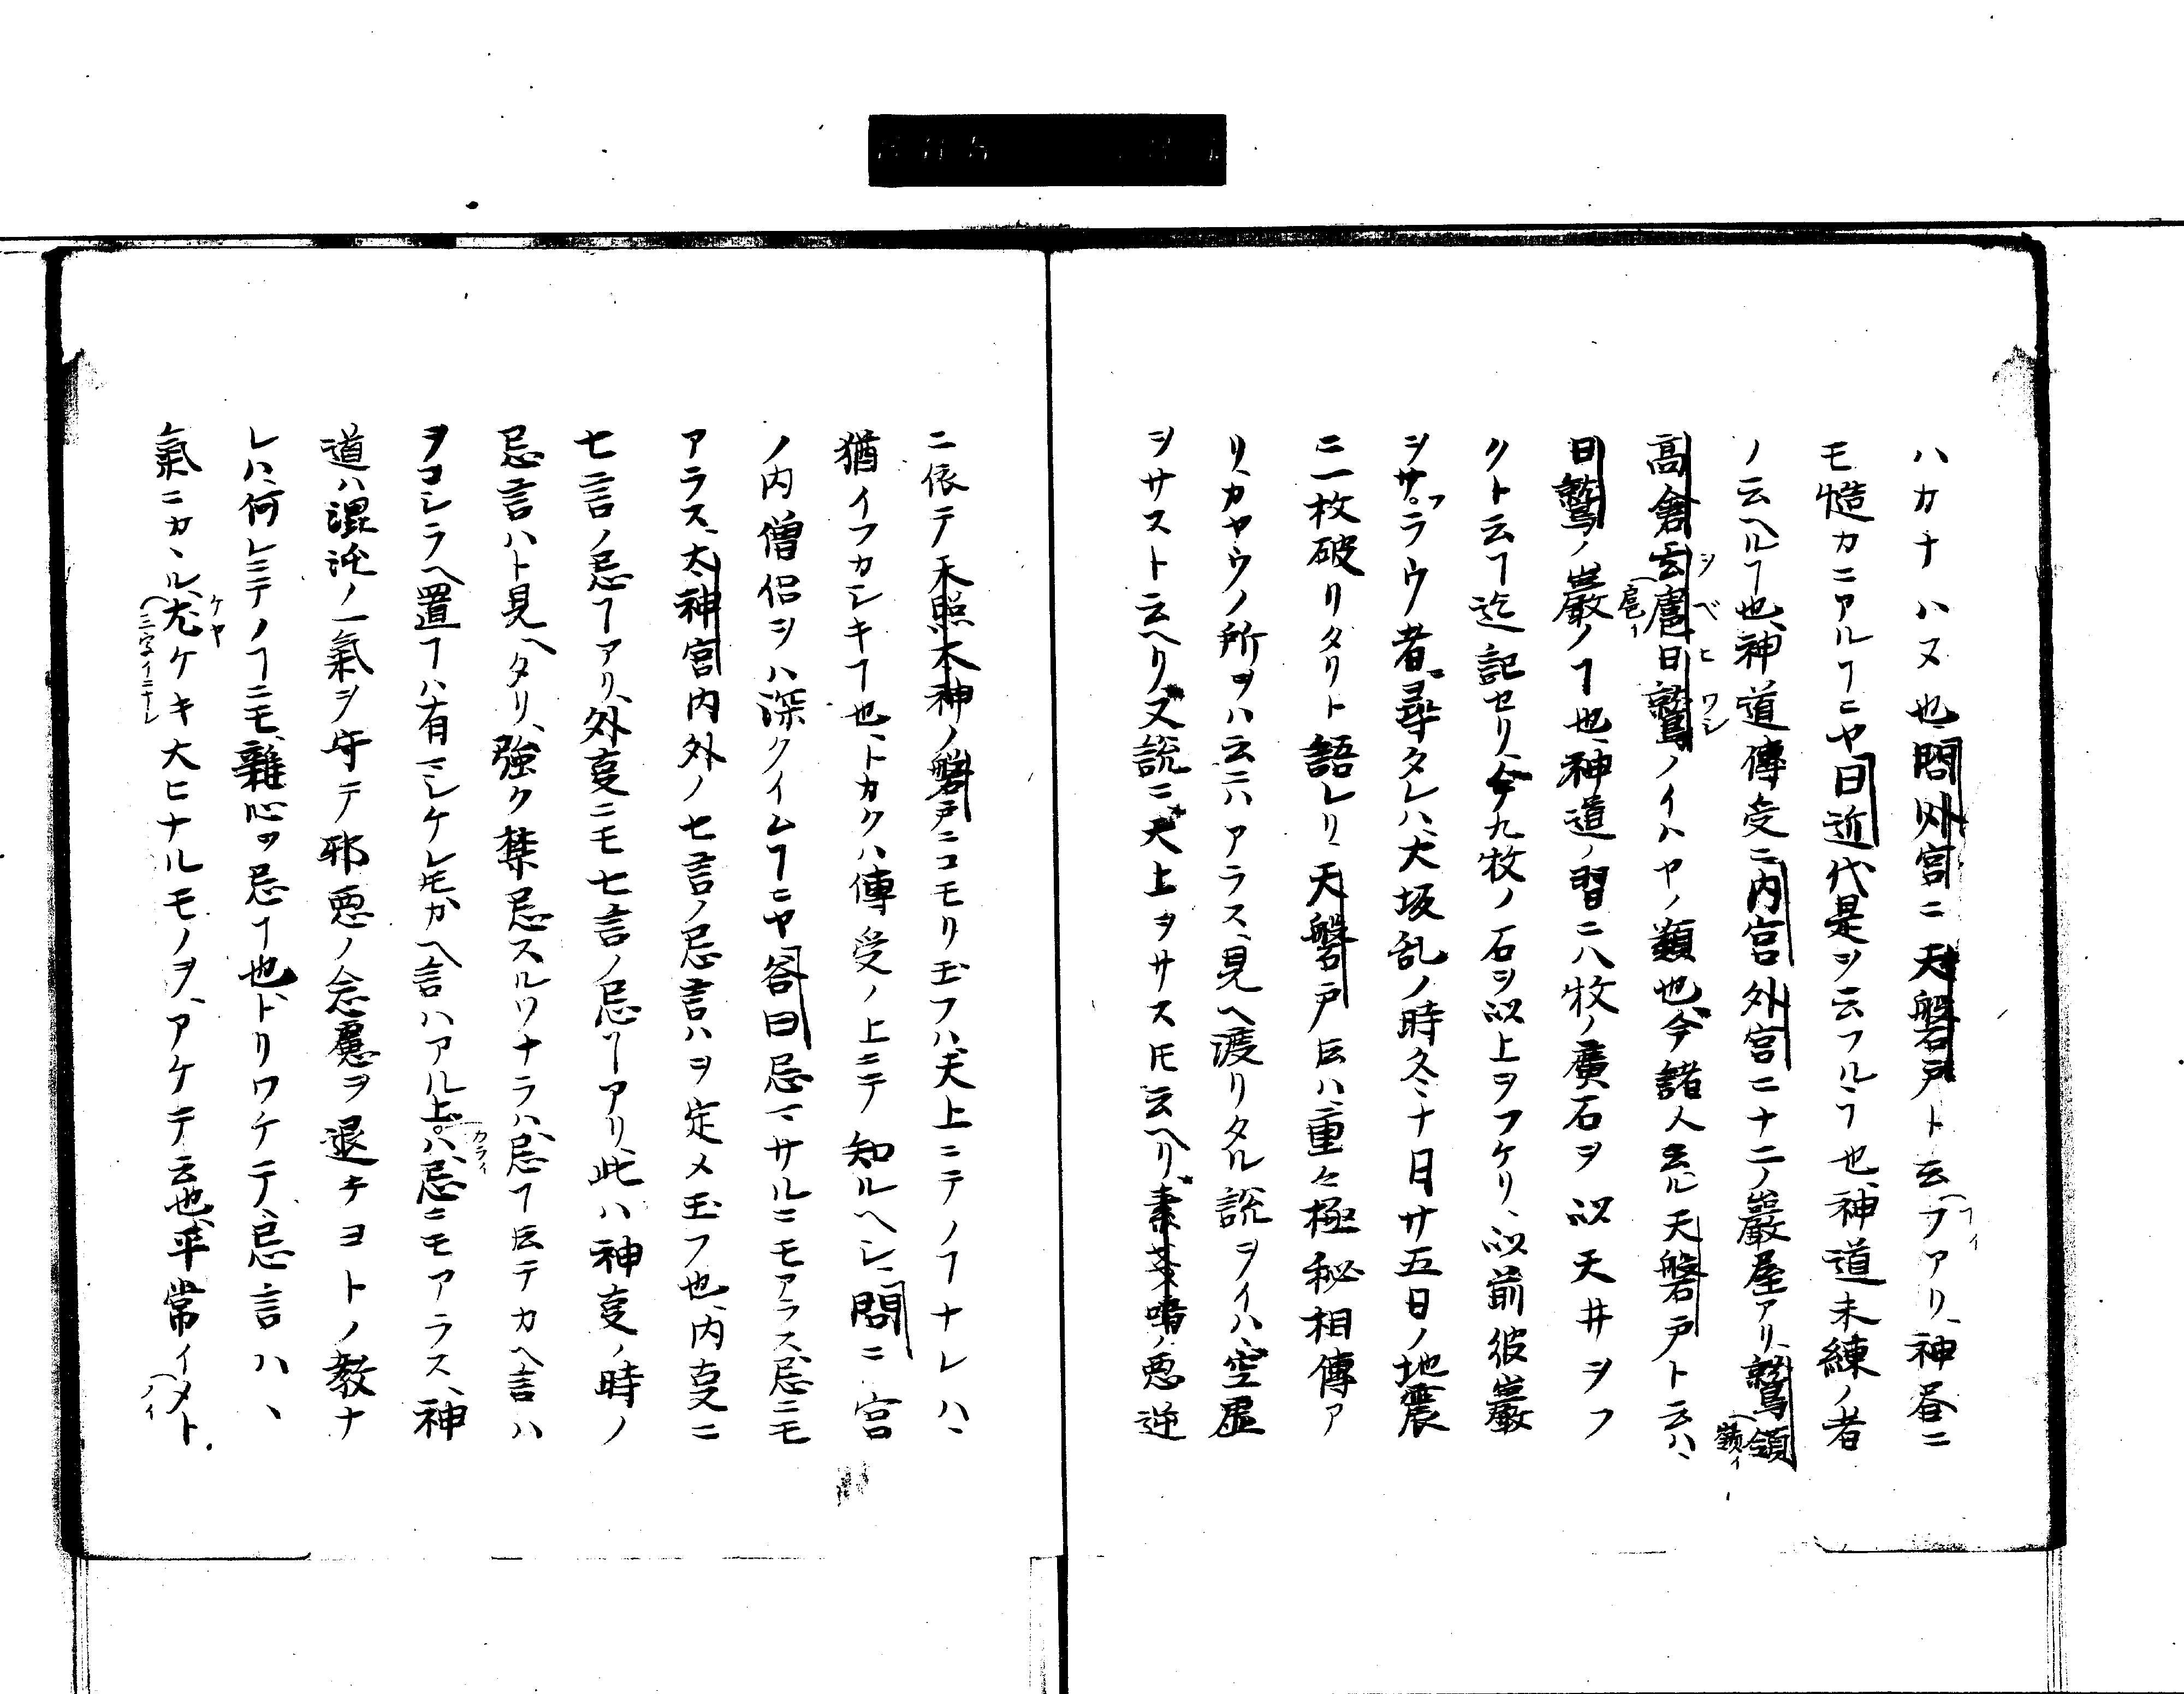 ハカナハヌ也、問外宮ニ天磐戸ト云フアリ、神昼ニ
モ慥カニアルヿニヤ曰近代是ヲ云フルヿ也、神道未練ノ者
ノ云ヘルヿ也、神道傳受ニ内宮外宮ニ十二ノ巖屋アリ、鷲領
高倉
日鷲ノイハヤノ類也、今諸人云ル天磐戸ト云ハ、
日鷲ノ巖ノヿ也、神道ノ習ニ八牧ノ廣石ヲ以天井ヲフ
クト云ヿ迄記セリ、今九牧ノ石ヲ以上ヲフケリ、以前彼巖
ヲサフラウ者ニ尋タレハ、大坂乱ノ時冬十月廿五日ノ地震
ニ一枚破リタリト語レリ、天磐戸ト云ハ、重々極秘相傳ア
リ、カヤウノ所ヲハ云ニハアラス、見ヘ渡リタル説ヲイハ、空虚
ヲサスト云ヘリ、又説ニ天上ヲサストモ云ヘリ、素盞嗚ノ悪逆
ニ依テ天照太神ノ磐戸ニコモリ玉フハ、天上ニテノヿナレハ、
猶イフカシキヿ也、トカクハ傳受ノ上ニテ知ルヘシ、問ニ宮
ノ内僧侶ヲハ深クイムヿニヤ答曰忌マサルニモアラス、忌ニモ
アラス、太神宮内外ノ七言ノ忌言ハヲ定メ玉フ也、内㕝ニ
七言ノ忌ヿアリ、外㕝ニモ七言ノ忌ヿアリ、此ハ神㕝ノ時ノ
忌言ハト見ヘタリ、強ク禁忌スルワナラハ、忌ヿ云テカヘ言ハ
ヲコシラヘ置ヿハ有マシケレ𪜈カヘ言ハアル上ハ、忌ニモアラス、神
カライ
道ハ混沌ノ一氣ヲ守テ邪悪ノ念慮ヲ退キヨトノ教ナ
レハ、何レニテノヿニモ、雜心ヲ忌ヿ也、トリワケテ、忌言ハ、
氣ニカヽル、尤ケキ大ヒナルモノヲ、アケテ云也、平常イメト
ケヤ
三字イニナシ
ハイ